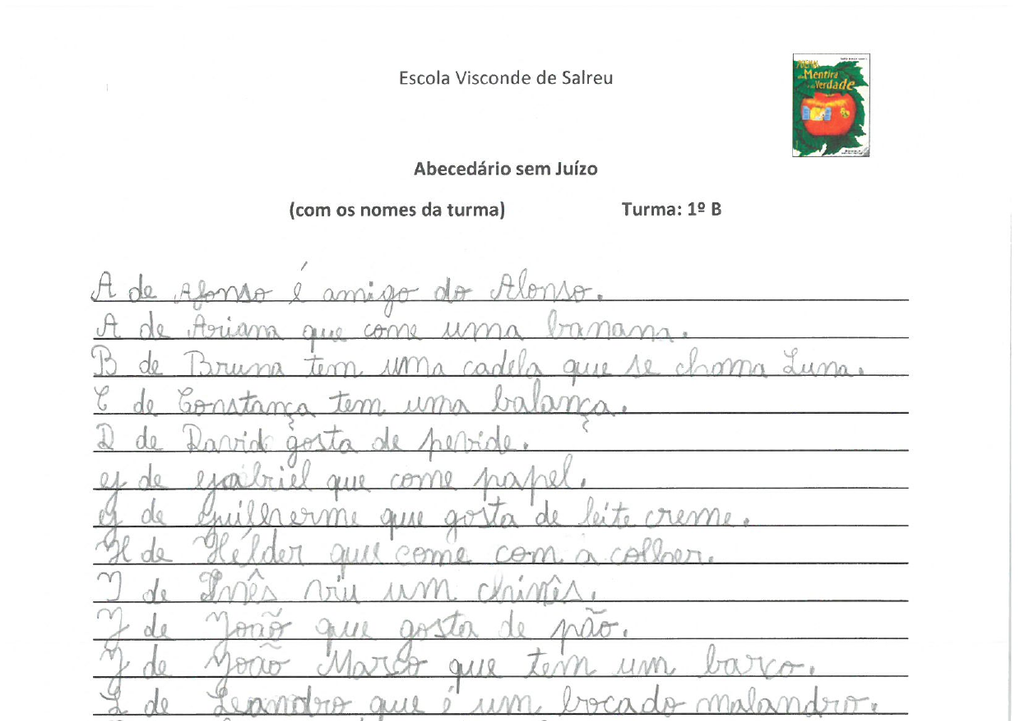 Escola Visconde de Salreu
Mentira
Verdade
Abecedário sem Juízo
(com os nomes da turma) Turma: 1º B
A de Afonso é amigo do Alonso.
A de Ariana que come uma banana.
B de Bruna tem uma cadela que se chama Luna.
C de Constança tem uma balança.
D de David gosta de pevide.
G de Gabriel que come papel.
G de Guilherme que gosta de leite creme.
H de Hélder que come com a colher.
I de Inês viu um chinês.
J de João que gosta de pão.
J de João Marco que tem um barco.
L de Leandro que é um bocado malandro.